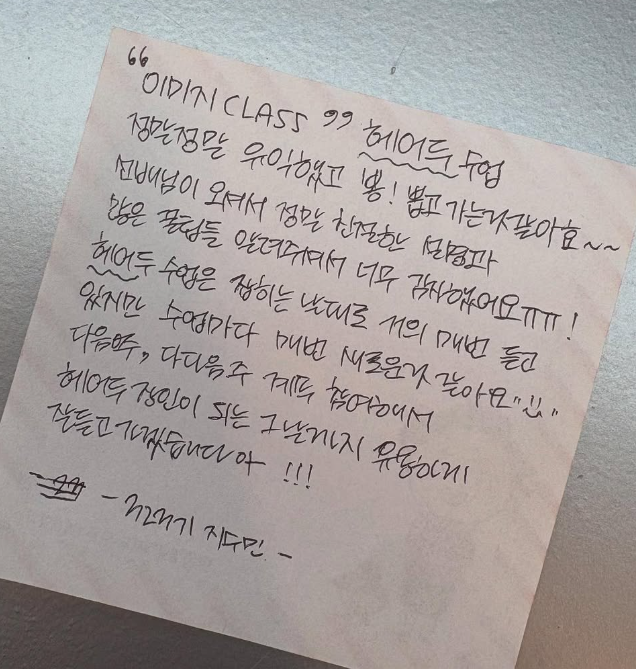 “이미지 CLASS” 헤어두 수업
정말정말 유익했고 뽕! 뽑고 가는거 같아효~~
선배님이 오셔서 정말 친절한 설명과
많은 꿀팁들 알려주셔서 너무 감사했어요ㅠㅠ!
헤어두 수업은 잡히는 날대로 거의 매번 듣고
있지만 수업마다 매번 새로운거 같아요
다음주, 다다음주 계속 참여해서
헤어두 장인이 되는 그날까지 유용하게
잘듣고가겠습니다아 !!!
지수민 -